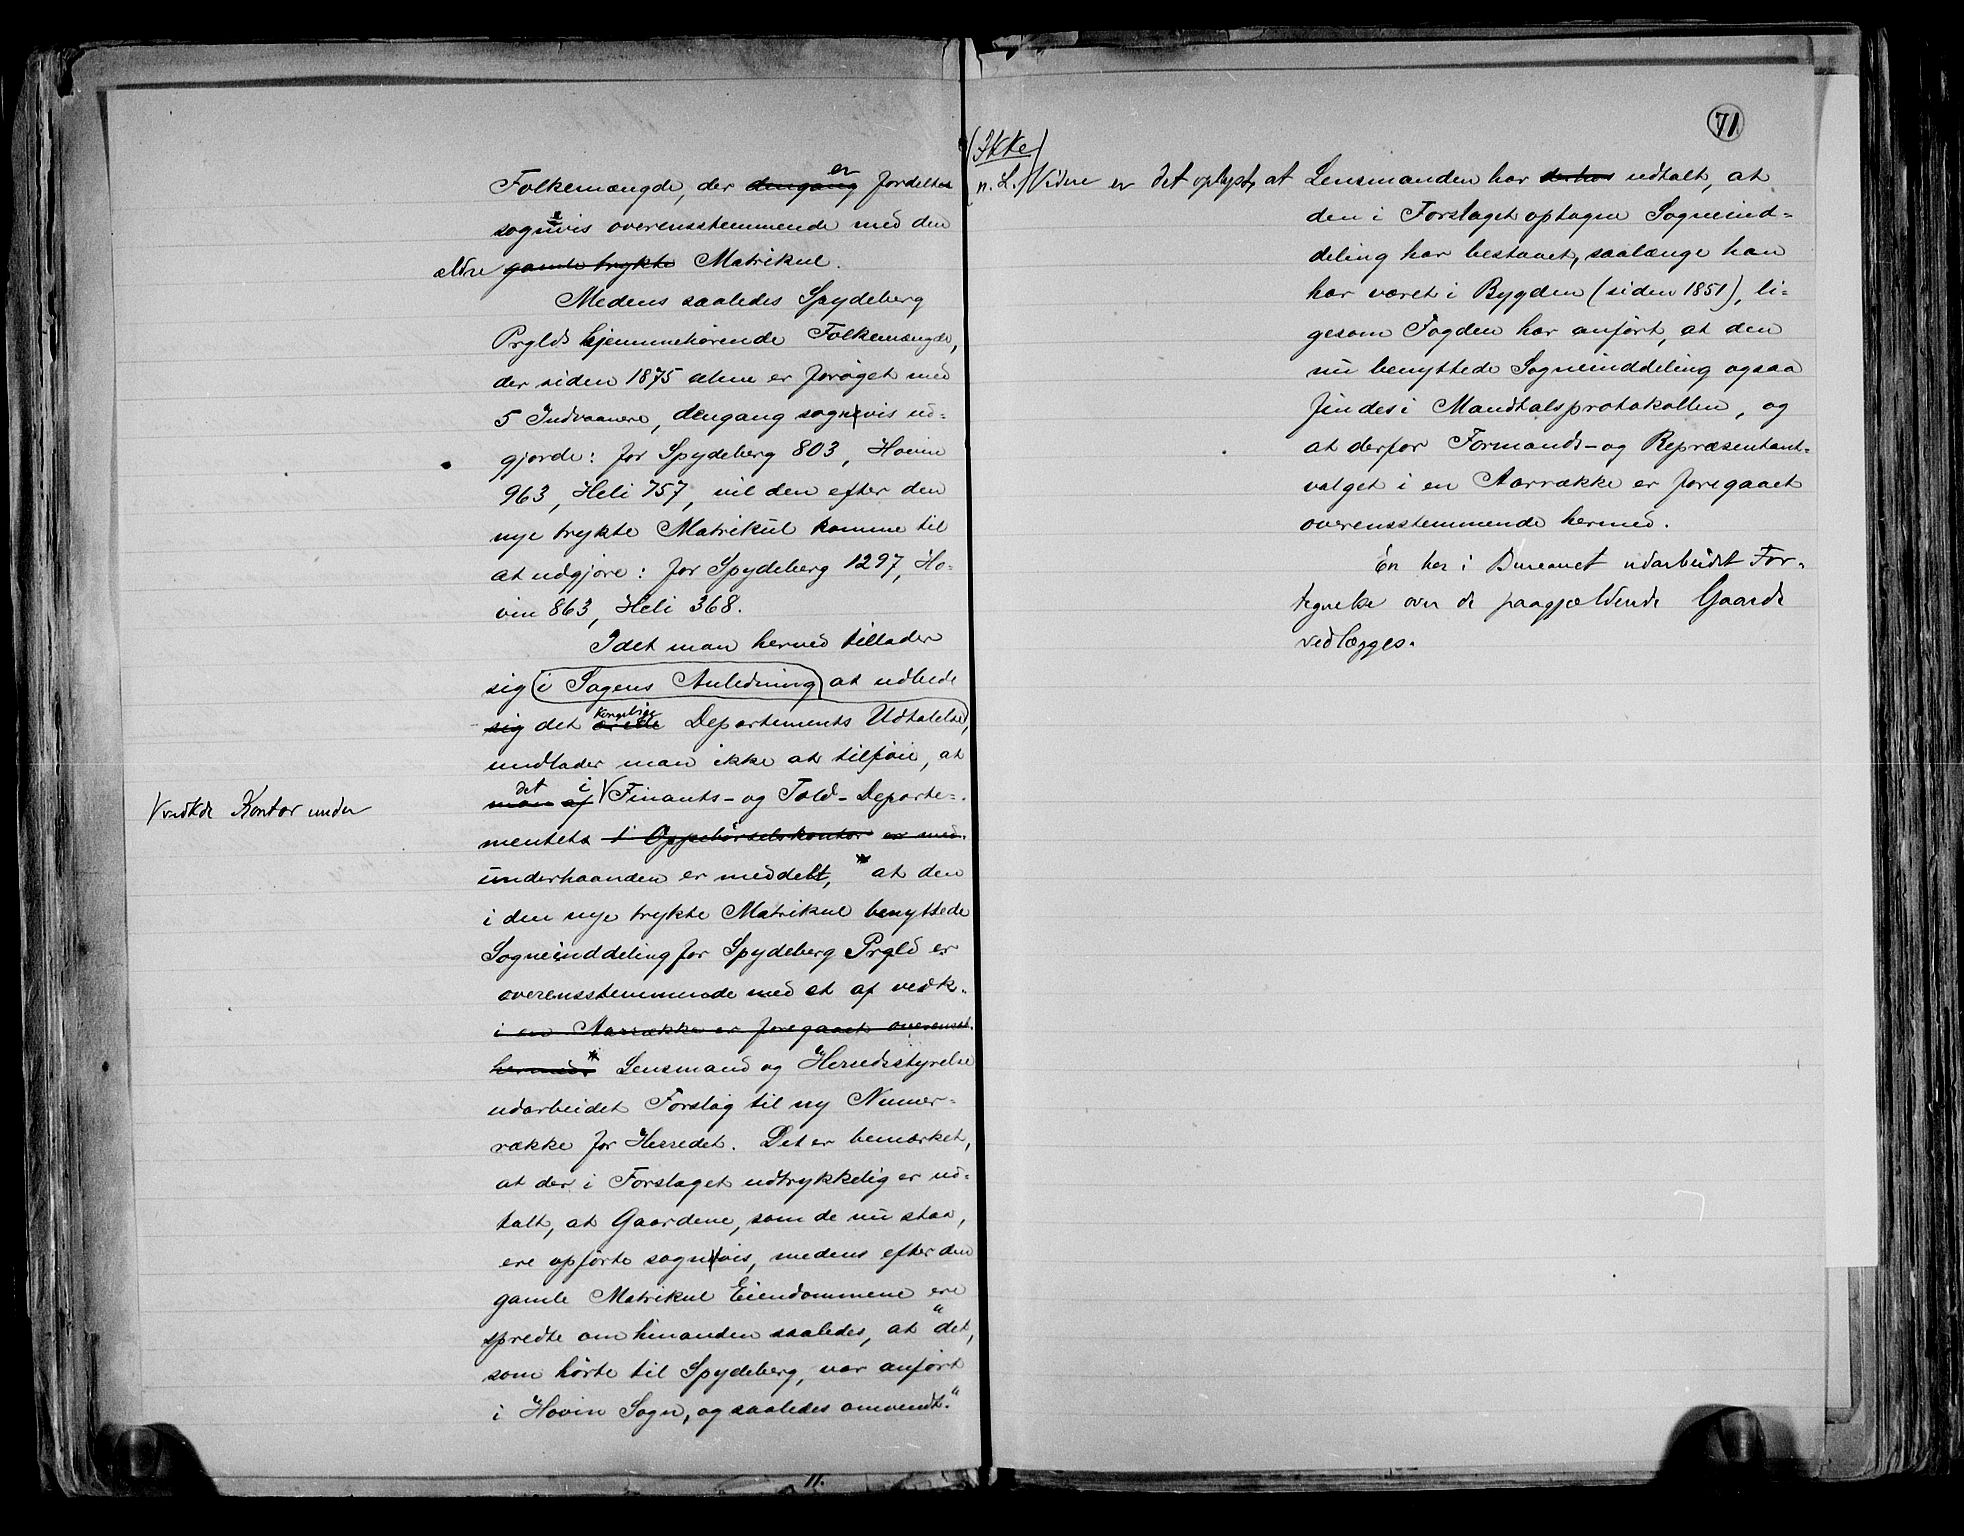 Folkemængde, der dengang er fordelt
sognevis overensstemmende med den
ældre gamle trykte Matrikul.
Medens saaledes Spydeberg
Prglds hjemmehørende Folkemængde,
der siden 1875 alene er forøget med
5 Indvaanere, dengang sognevis ud-
gjorde: for Spydeberg 803, Hovin
963, Heli 757, vil den efter den
nye trykte Matrikul komme til
at udgjøre: for Spydeberg 1297, Ho-
vin 863, Heli 368.
Idet man herved tillader
sig (i Sagens Anledning) at udbede
sig det kongelige Departements Udtalelse,
undlader man ikke at tilføie, at
man af det i V Finants- og Told-Departe-
V vedkde Kontor under
mentets i Oppebørselskontor er med-
underhaanden er meddelt, * at den
i den nye trykte Matrikul benyttede
Sogneinddeling for Spydeberg Prgld er
overensstemmende med et af vedk.
i en Aarrække er foregaaet overensst.
hermed * Lensmand og Herredsstyrelse
udarbeidet Forslag til ny Numer-
række for Herredet. Det er bemærket,
at der i Forslaget udtrykkelig er ud-
talt, at Gaardene, som de nu staa,
ere opførte sognevis, medens efter den
gamle Matrikul Eiendommene ere
spredte om hinanden saaledes, at "det,
som hørte til Spydeberg, var anført
i Hovin Sogn, og saaledes omvendt."
11.
71
(Ikke
n. L.) Videre er det oplyst, at Lensmanden har derhos udtalt, at
den i Forslaget optagne Sogneind-
deling har bestaaet, saalænge han
har været i Bygden (siden 1851), li-
gesom Fogden har anført, at den
nu benyttede Sogneinddeling ogsaa
findes i Mandtalsprotokollen, og
at derfor Formands- og Repræsentant-
valget i en Aarrække er foregaaet
overensstemmende hermed.
En her i Bureauet udarbeidet For-
tegnelse over de paagjældende Gaarde
vedlægges.